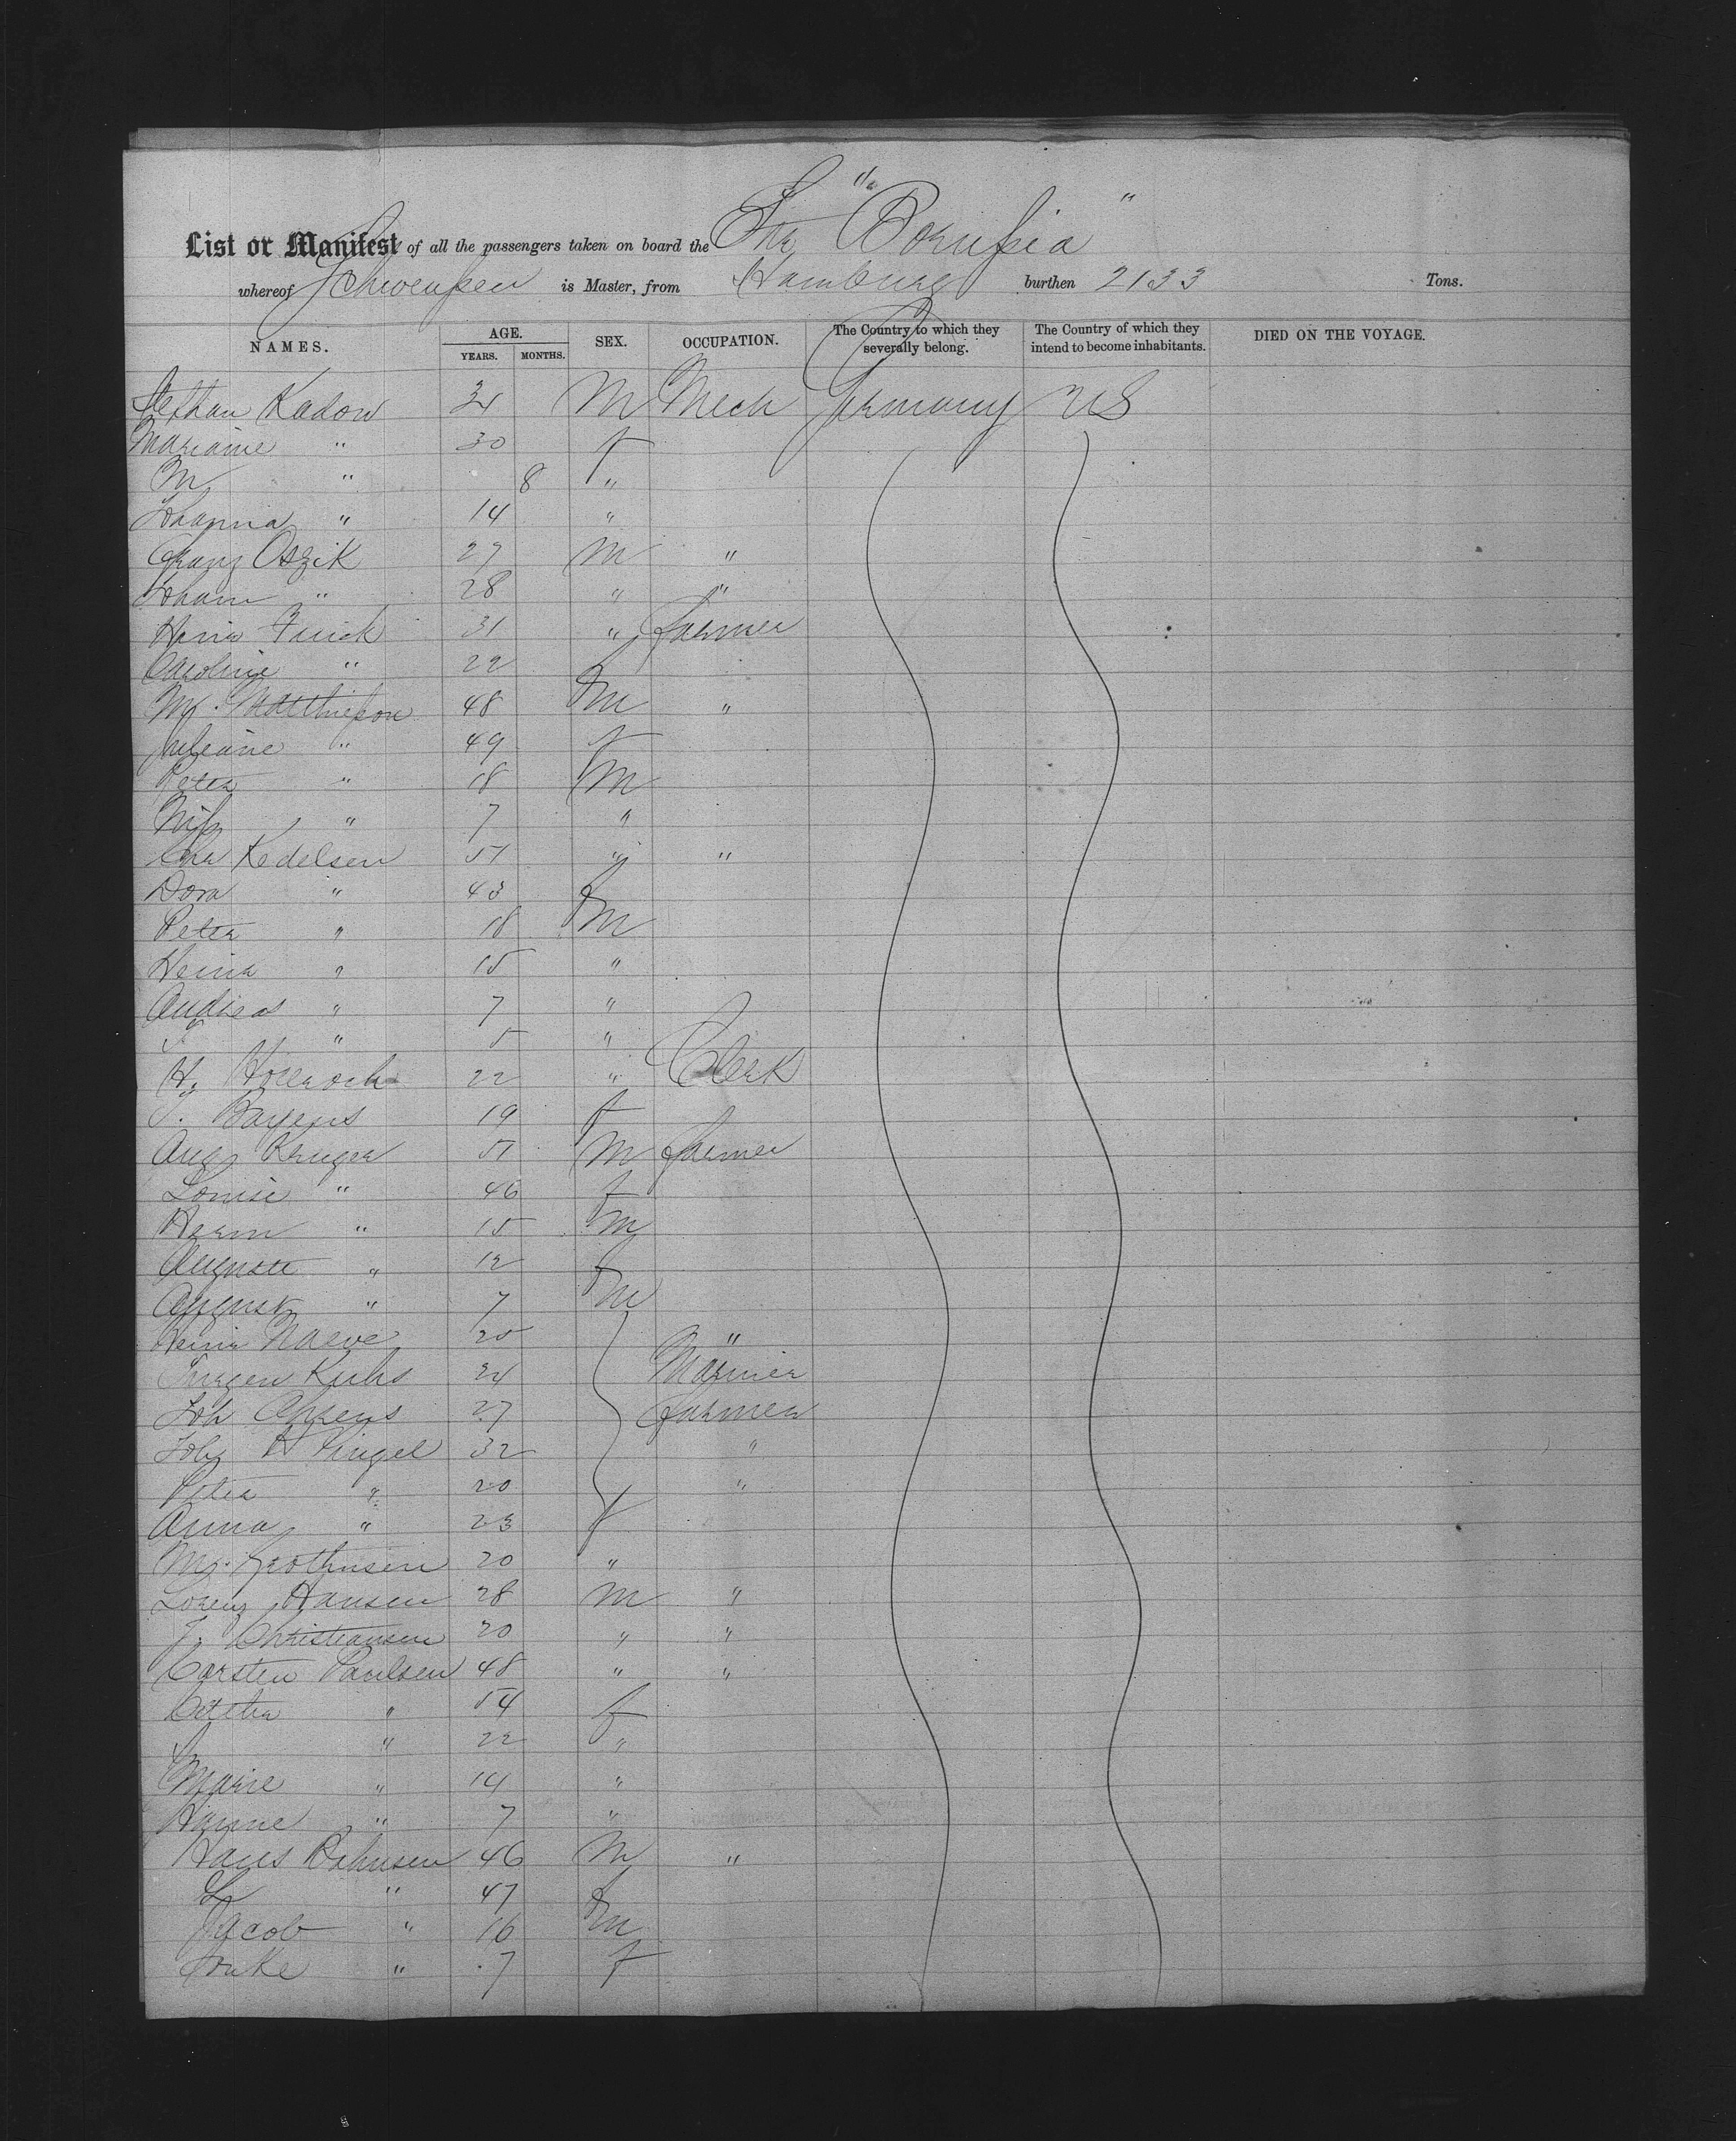 Str "Borussia"
List or Manifest of all the passengers taken on board the
whereof Schwensen is Master, from Hamburg burthen 2133 Tons.
NAMES. AGE. YEARS. MONTHS. SEX. OCCUPATION. The Country to which they severally belong. The Country of which they intend to become inhabitants. DIED ON THE VOYAGE.
Kadow M Mech Germany US
Marianne " 30 f
M " 8 "
Johanna " 14 "
Franz Oszik 27 M "
Johann " 28 " "
Heinr 31 " Farmer
Caroline " 22 f
Mg. Matthießen 48 M "
Juliane " 49 f
Peter " 18 M
Nis " 7 "
Chr Kedelsen 51 " "
Dora " 43 f
Peter " 18 M
Heinr " 15 "
Andreas " 7 "
" 5 "
H. 22 " Clerk
Bayens 19 f
Aug Kruger 51 M Farmer
Louise " 46 f
Herm " 15 M
Auguste " 12 f
August " 7 M
Heinr Naeve 25 "
Jurgen Kuhs 24 Mariner
Joh Ahrens 27 Farmer
Johs H Pingel 32 "
Peter " 20 "
Anna " 23 f
Mg. Grothusen 20 "
Lorenz Hansen 28 M "
J. Christiansen 20 " "
Carsten Paulsen 48 " "
" 54 f
" 22 "
Marie " 14 "
Hanne " 7 "
Hans Bahnsen 46 M "
" 47 f
Jacob " 16 M
" 7 f